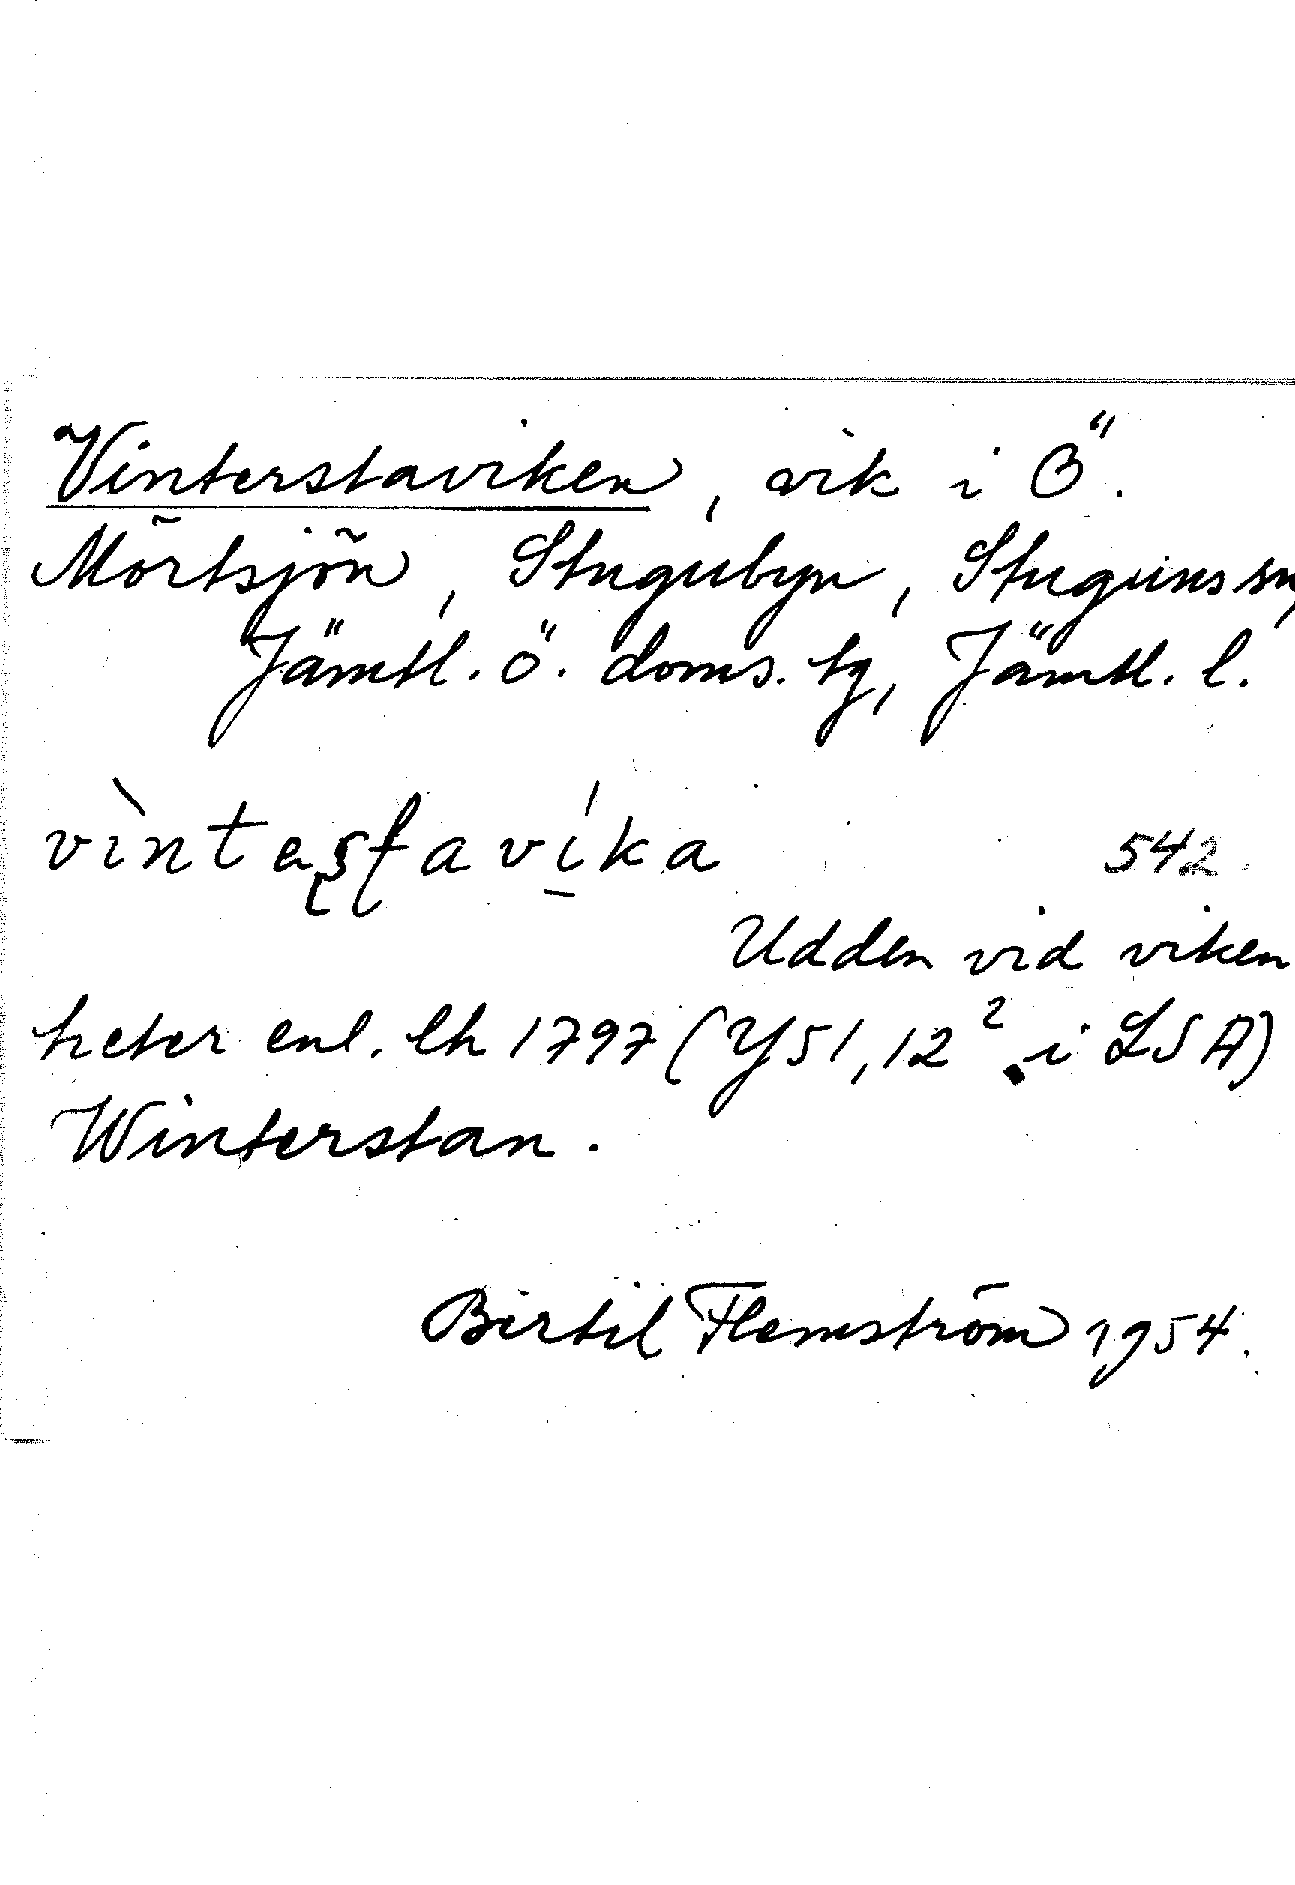 Vinterstaviken, vik i Ö.
Mörtsjön, Stugubyn, Stuguns sn,
Jämtl. ö. doms. tg, Jämtl. l.
vìntaʂʈavíka 542
Udden vid viken
heter enl. lh 1797 (Y51, 12² i LSA)
Winterstan.
Bertil Flemström 1954.